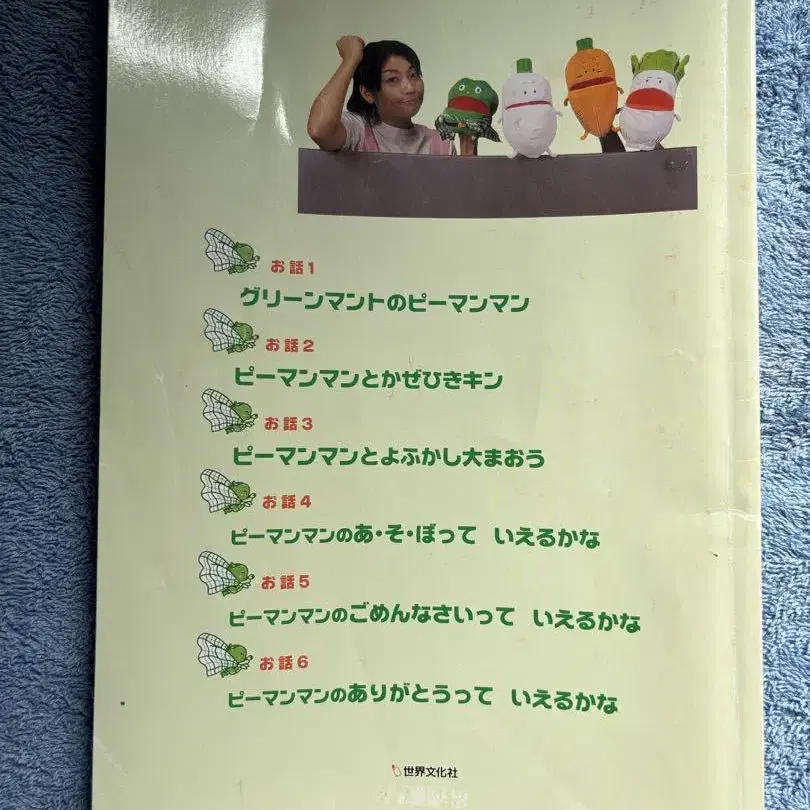 お話1
グリーンマントのピーマンマン
お話2
ピーマンマンとかぜひきキン
お話3
ピーマンマンとよふかし大まおう
お話4
ピーマンマンのあ・そ・ぼって いえるかな
お話5
ピーマンマンのごめんなさいって いえるかな
お話6
ピーマンマンのありがとうって いえるかな
世界文化社